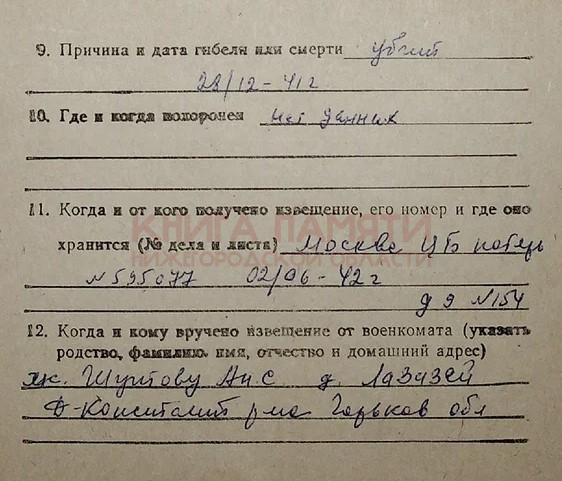 9. Причина и дата гибели или смерти убит
28/12-41 г
10. Где и когда похоронен нет данных
11. Когда и от кого получено извещение, его номер и где оно
хранится (№ дела и листа) Москва ЦБ потерь
N 595077 02/06-42 г
д 9 N 154
КНИГА ПАМЯТИ
НИЖЕГОРОДСКОЙ ОБЛАСТИ
12. Когда и кому вручено извещение от военкомата (указать
родство, фамилию, имя, отчество и домашний адрес)
Шутову д. Лазазей
Д-Констант р-на Горьков обл